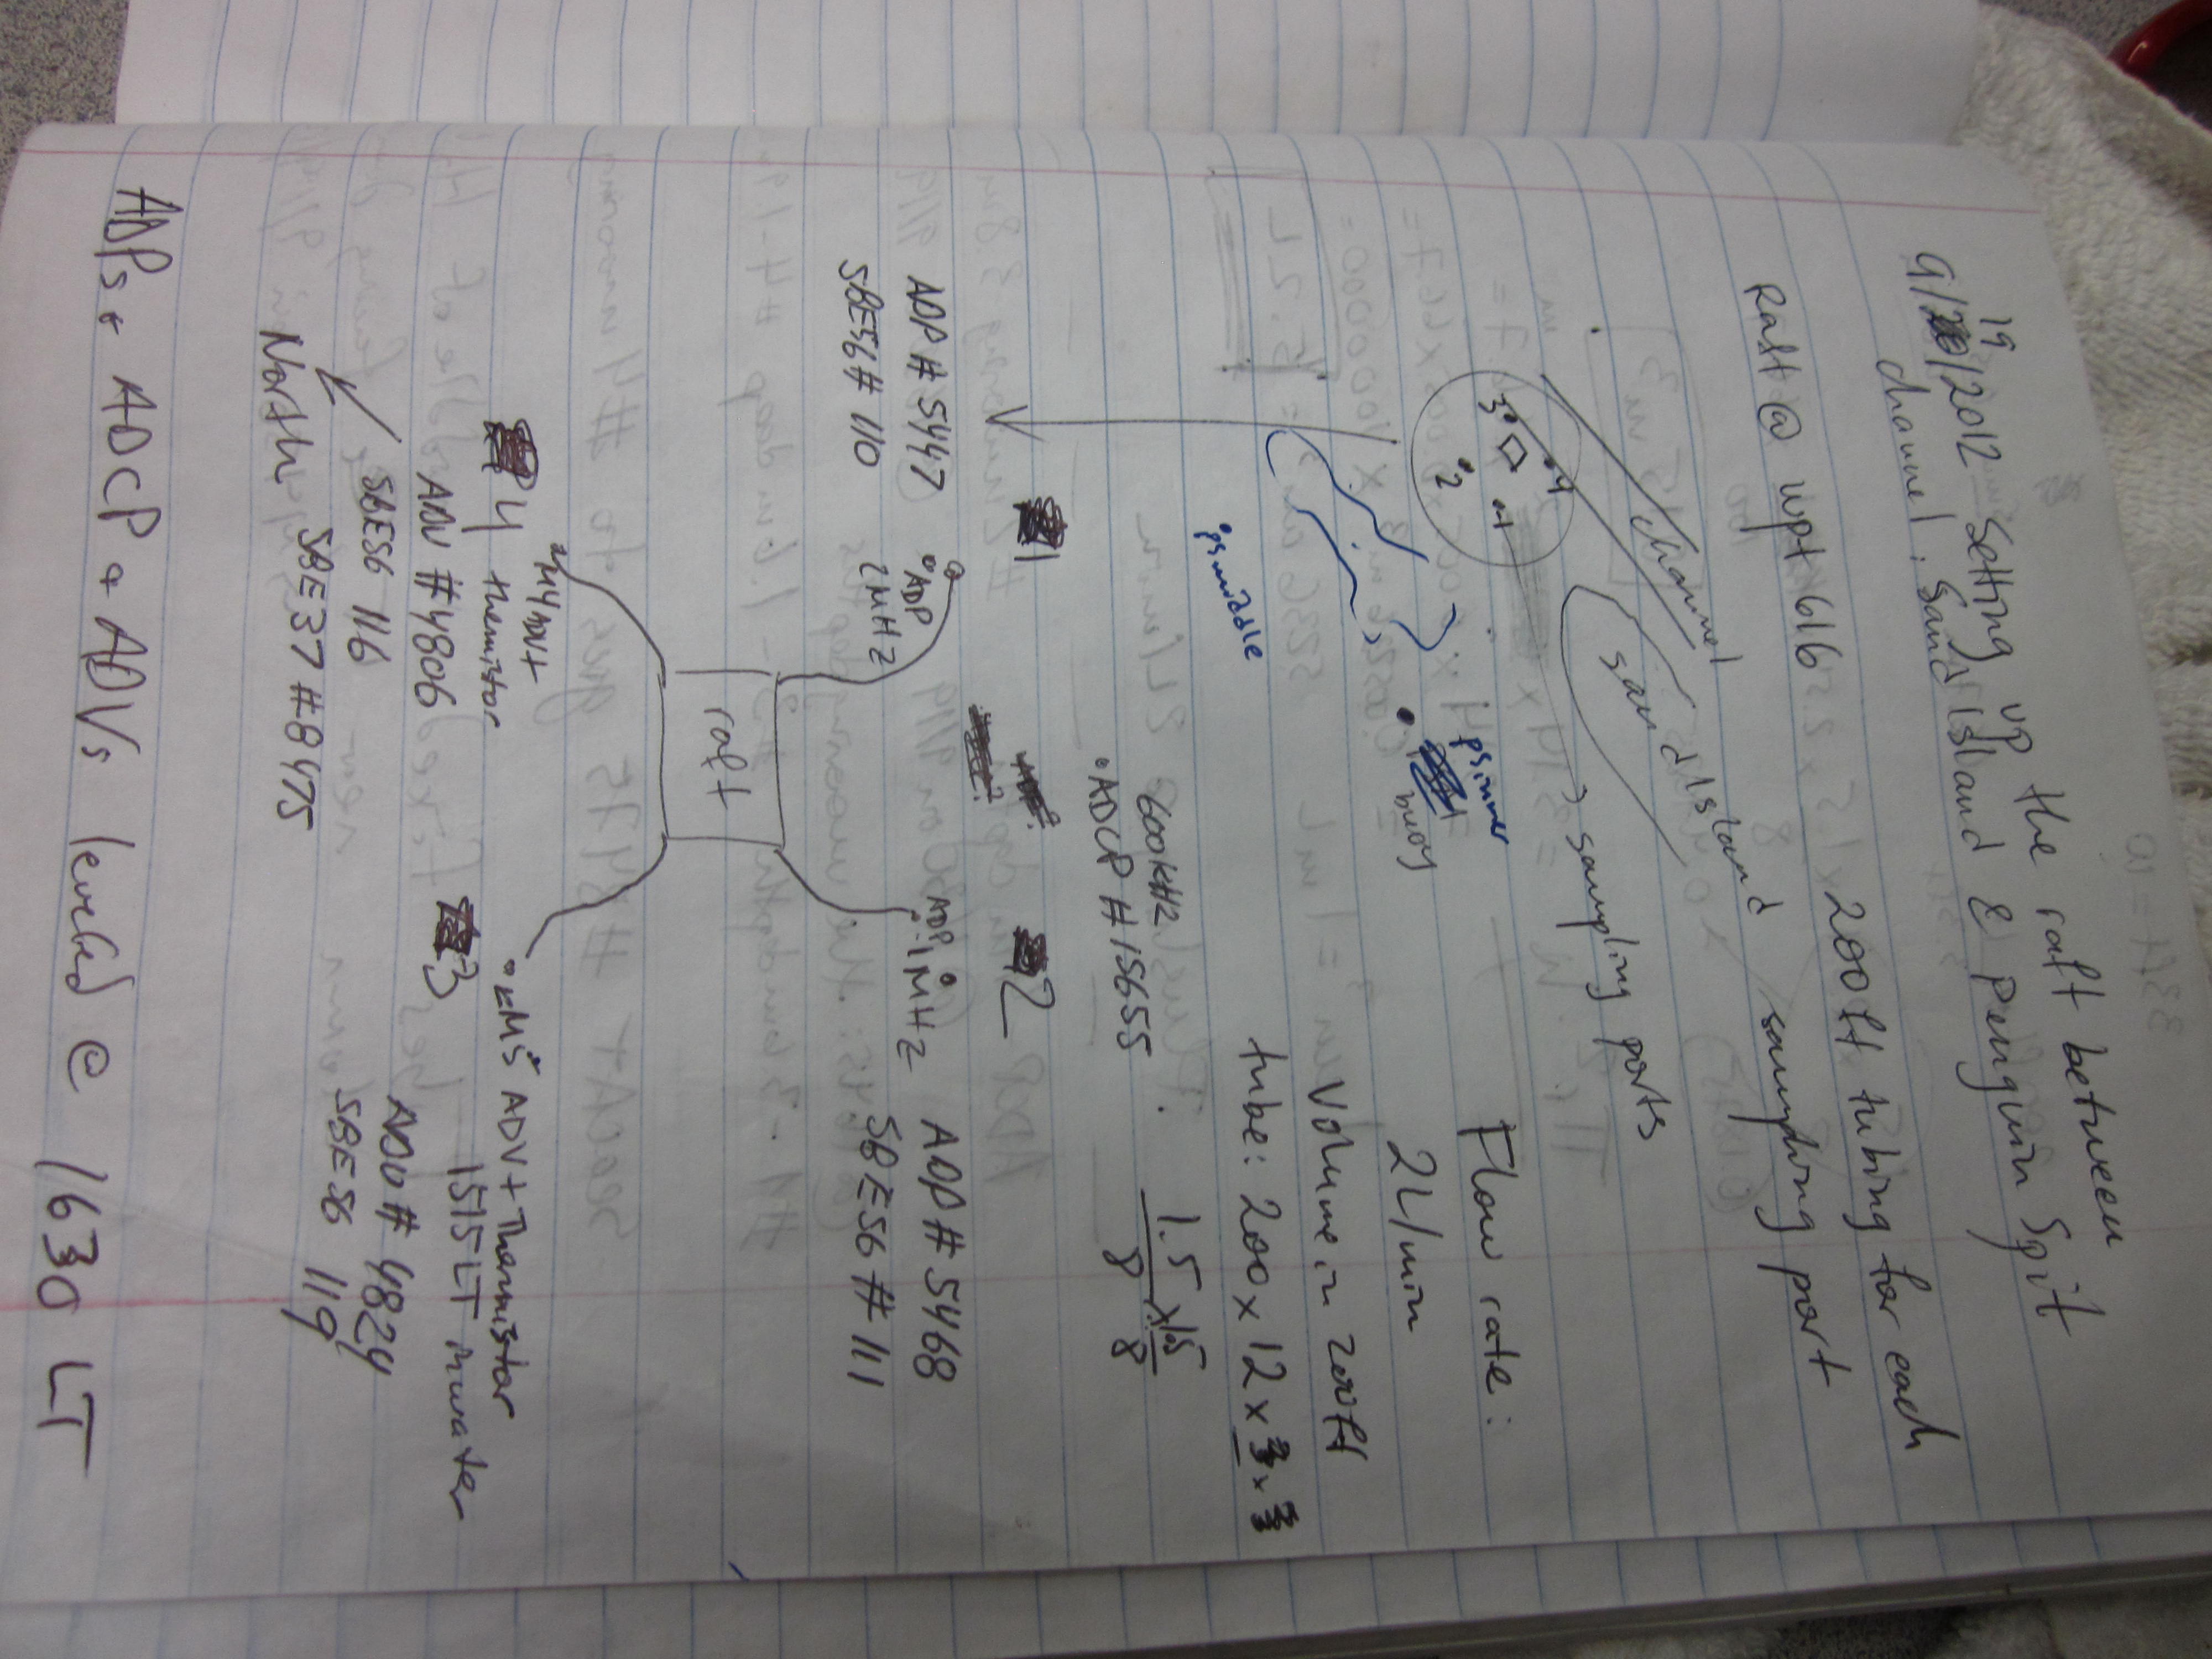 19
9/20/2012 Setting up the raft between
channel, Sand island & Penguin Spit
Raft @ wpt 616
200ft tubing for each
sampling port
channel
sand island
sampling ports
4
3
1
2
psinner
buoy
psmiddle
Flow rate:
2L/min
Volume in 200ft
tube: 200 x 12 x
1.5 x 1.5
8 8
600kHz
ADCP #15655
1
2
ADP # 5447
SBE56 # 110
ADP
2MHz
ADP
1MHz
ADP # 5468
SBE56 # 111
raft
4
ADV+
thermistor
ADV #4806
SBE56 116
SBE37 #8475
North
3
ADV + Thermistor
1515 LT in water
ADV # 4824
SBE56 119
ADPs + ADCP + ADVs leveled @ 1630 LT